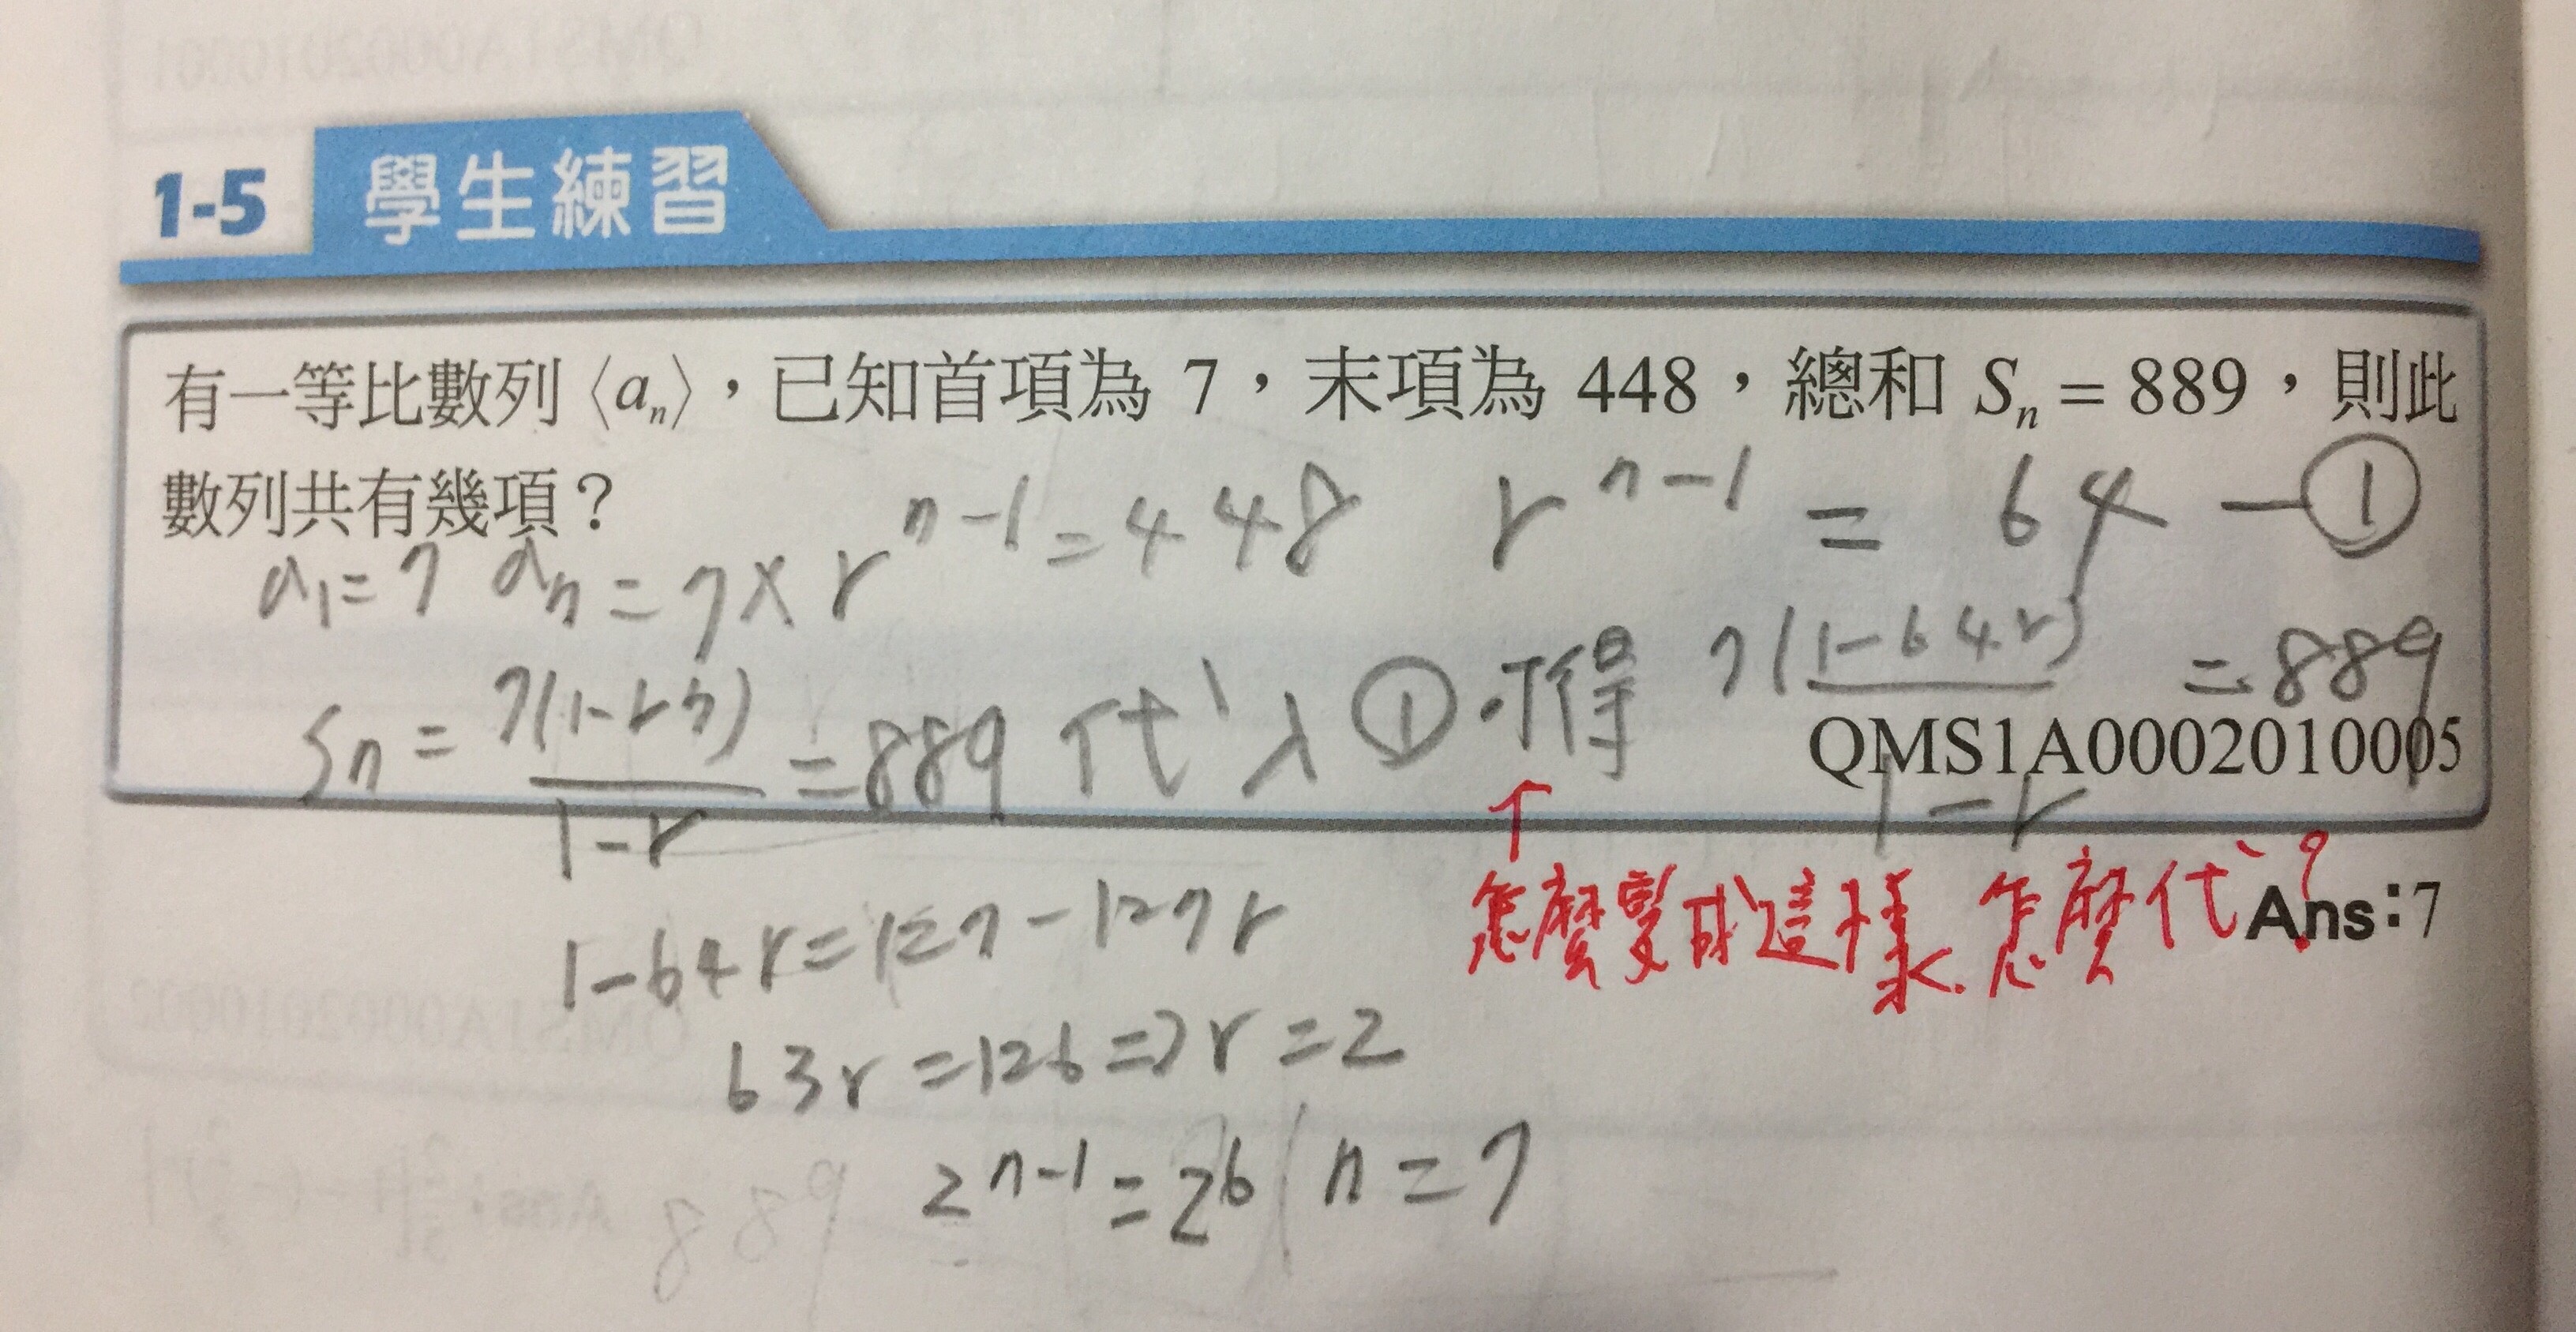 1-5 學生練習
有一等比數列〈aₙ〉，已知首項為 7，末項為 448，總和 Sₙ = 889，則此
數列共有幾項？
a₁=7 aₙ=7×rⁿ⁻¹=448 rⁿ⁻¹ = 64 —①
Sₙ = 7(1-rⁿ)/(1-r) =889 代入①.得 7(1-64r)/(1-r) =889
QMS1A0002010005
↑
怎麼變成這樣.怎麼代?
Ans:7
1-64r=127-127r
63r=126⇒r=2
2ⁿ⁻¹=2⁶, n=7